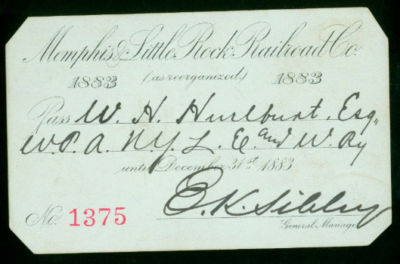 Memphis & Little Rock Railroad Co.
1883 (as reorganized) 1883
Pass W. H. Hurlburt, Esq.
W.P.A. N.Y. L. E. and W. Ry
until December 31st 1883
No. 1375
E.K. Sibley
General Manager